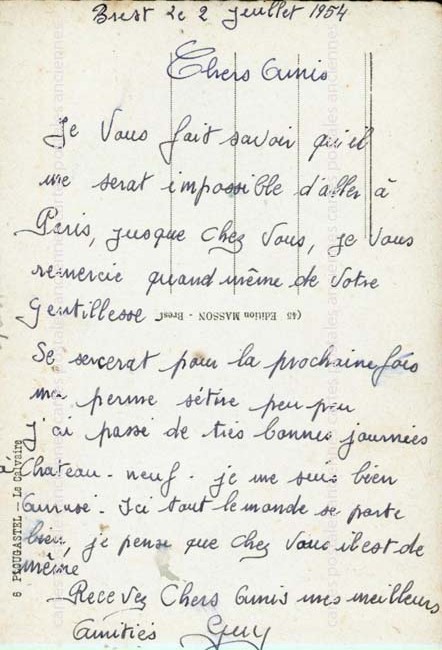 Brest le 2 Juillet 1954
Chers Amis
Je Vous fait savoir qu'il
me serat impossible d'aller à
Paris, jusque Chez Vous, je Vous
remercie quand même de Votre
Gentillesse
(45 Edition MASSON - Brest)
Se sercerat pour la prochaine fois
ma perme sétire peu-peu
J'ai passé de très bonnes journées
à
Chateau-neuf. je me suis bien
Amusé. Ici tout le monde se porte
bien, je pense que chez Vous il est de
même
Recevez Chers Amis mes meilleurs
Amitiés Guy
6 PLOUGASTEL — Le Calvaire